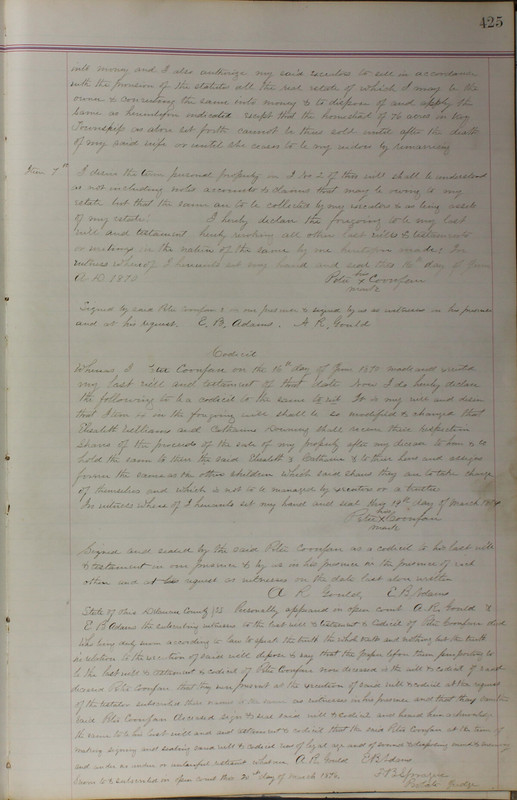 425
with money and I also authorize my said executors to sell in accordance
with the provision of the statutes all the real estate of which I may be the
owner & converting the same into money & to dispose of and apply the
same as hereinbefore indicated except that the homestead of 76 acres in
Township as above set forth cannot be thus sold until after the death
of my said wife or until she ceases to be my widow by remarrying
Item 7th I desire the term personal property in I No. 2 of this will shall be understood
as not including notes accounts & claims that may be owing to my
estate but that the same are to be collected by my executors & as being assets
of my estate. I hereby declare the foregoing to be my last
will and testament hereby revoking all other last wills & testaments
or writings in the nature of the same by me heretofore made. In
witness whereof I hereunto set my hand and seal this 16th day of June
A.D. 1870
Peter his x mark Coonfare
Signed by said Peter Coonfare in our presence & signed by us as witnesses in his presence
and at his request. E. B. Adams. A. R. Gould
Codicil
Whereas I Peter Coonfare on the 16th day of June 1870 made and executed
my last will and testament of that date Now I do hereby declare
the following to be a codicil to the same to wit It is my will and desire
that Item in the foregoing will shall be so modified & changed that
Elizabeth Williams and Catharine shall receive their respective
shares of the proceeds of the sale of my property after my decease to them & to
hold the same to them the said Elizabeth & Catharine & to their heirs and assigns
forever the same as the other children which said shares they are to take charge
of themselves and which is not to be managed by executors or a trustee
In witness where of I hereunto set my hand and seal this 19th day of March 1874
Peter his x mark Coonfare
Signed and sealed by the said Peter Coonfare as a codicil to his last will
& testament in our presence & by us in his presence & in the presence of each
other and at his request as witnesses on the date last above written
A. R. Gould, E. B. Adams
State of Ohio County SS Personally appeared in open court A. R. Gould &
E. B. Adams the subscribing witnesses to the last will & testament & codicil of Peter Coonfare decd
who being duly sworn according to law to speak the truth the whole truth and nothing but the truth
in relation to the execution of said will depose & say that the paper before them purporting to
be the last will & testament & codicil of Peter Coonfare now deceased is the will & codicil of said
deceased Peter Coonfare that they were present at the execution of said will & codicil at the request
of the testator subscribed their names to the same as witnesses in his presence and that they saw the
said Peter Coonfare deceased sign & seal said will & codicil and heard him acknowledge
the same to be his last will and testament & codicil that the said Peter Coonfare at the time of
making signing and sealing said will & codicil was of legal age and of sound & disposing mind & memory
and under no undue or unlawful restraint whatever A. R. Gould E. B. Adams
Sworn to & subscribed in open court this 20th day of March 1876
Probate Judge